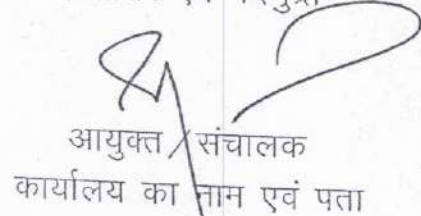 आयुक्त / संचालक
कार्यालय का नाम एवं पता